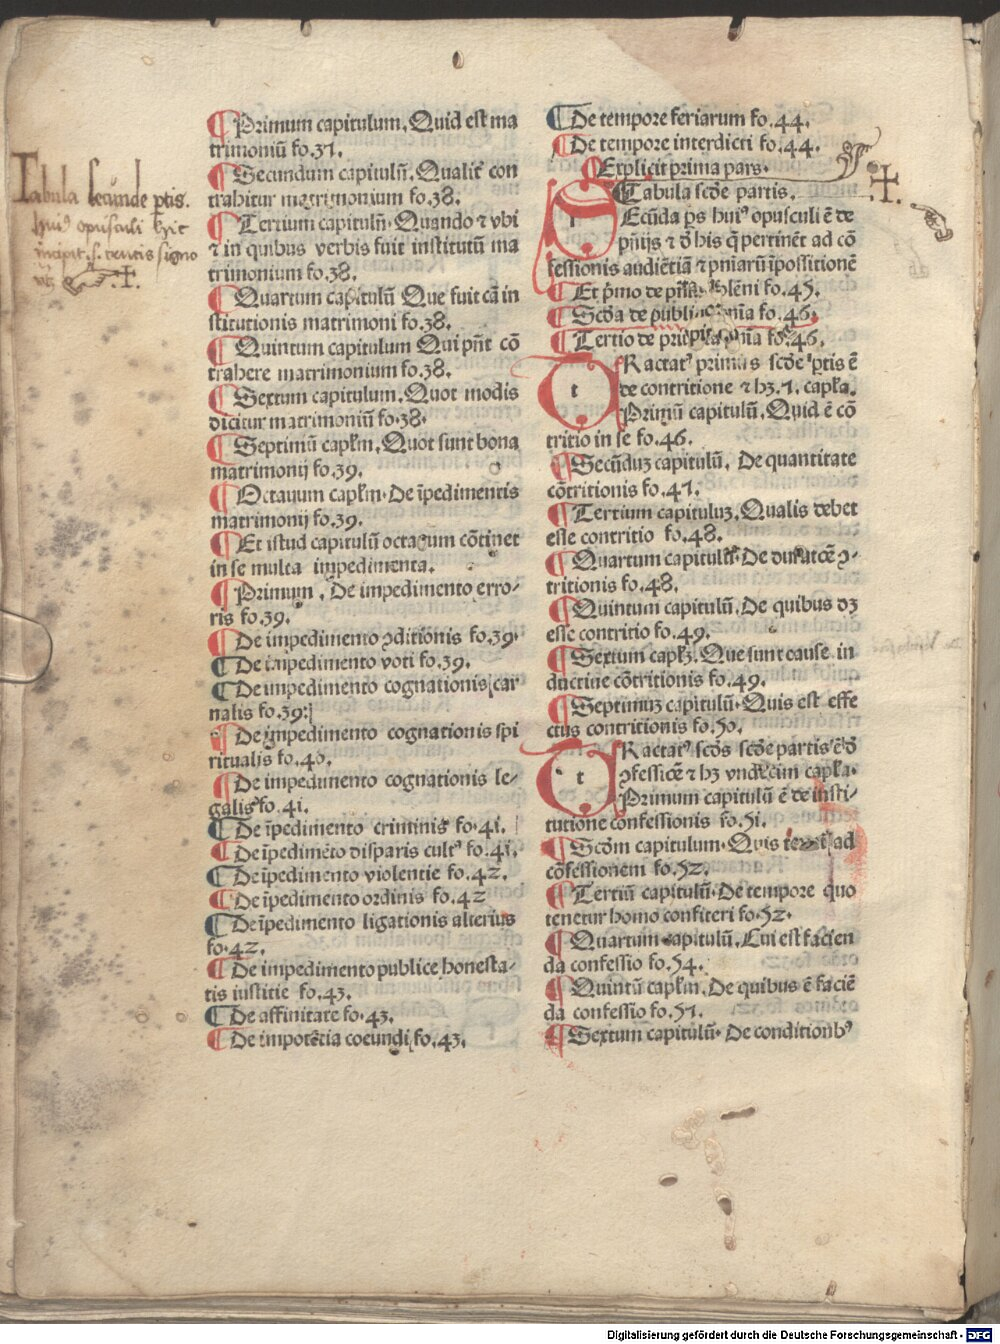 Tabula secunde ptis.
huiꝰ opusculi hic
incipit
¶ Primum capitulum. Quid est ma
trimoniū fo.37.
¶ Secundum capitulū. Qualiť con
trahitur matrimonium fo.38.
¶ Tertium capitulū. Quando ⁊ vbi
⁊ in quibus verbis fuit institutū ma
trimonium fo.38.
¶ Quartum capitulū Que fuit cā in
stitutionis matrimoni fo.38.
¶ Quintum capitulum Qui pñt cō
trahere matrimonium fo.38.
¶ Sextum capitulum. Quot modis
dicitur matrimoniū fo.38.
¶ Septimū capłm. Quot sunt bona
matrimonij fo.39.
¶ Octauum capłm. De īpedimentis
matrimonij fo.39.
¶ Et istud capitulū octauum cōtinet
in se multa impedimenta.
¶ Primum. De impedimento erro-
ris fo.39.
¶ De impedimento ꝯditionis fo.39.
¶ De impedimento voti fo.39.
¶ De impedimento cognationis car
nalis fo.39.
¶ De impedimento cognationis spi
ritualis fo.40.
¶ De impedimento cognationis le-
galis fo.41.
¶ De īpedimento criminis fo.41.
¶ De īpedimēto disparis cultꝰ fo.41.
¶ De īpedimento violentie fo.42.
¶ De īpedimento ordinis fo.42
¶ De īpedimento ligationis alterius
fo.42.
¶ De impedimento publice honesta-
tis iustitie fo.43.
¶ De affinitate fo.43.
¶ De impotētia coeundi fo.43.
¶ De tempore feriarum fo.44.
¶ De tempore interdicti fo.44.
¶ Explicit prima pars.
¶ Tabula scđe partis.
SEcūda ps huiꝰ opusculi ē de
pñijs ⁊ đ his q̄ pertinēt ad cō
fessionis audiētiā ⁊ pniarū īpositionē
¶ Et pͥmo de solēni fo.45.
¶ Scđa de publica pñia fo.46.
¶ Tertio de pñia fo.46.
tRactatꝰ primus scđe ꝑtis ē
de contritione ⁊ hꝫ.7. capła.
¶ Primū capitulū. Quid ē cō
tritio in se fo.46.
¶ Secūduꝫ capitulū. De quantitate
cōtritionis fo.47.
¶ Tertium capituluꝫ. Qualis debet
esse contritio fo.48.
¶ Quartum capitulū. De duratōe ꝯ-
tritionis fo.48.
¶ Quintum capitulū. De quibus dꝫ
esse contritio fo.49.
¶ Sextum capłꝫ. Que sunt cause in
ductiue cōtritionis fo.49.
¶ Septimuꝫ capitulū. Quis est effe
ctus contritionis fo.50.
tRactatꝰ scđs scđe partis ē đ
ꝯfessiōe ⁊ hꝫ vndecim capła.
¶ Primum capitulū ē de insti-
tutione confessionis fo.51.
¶ Scđm capitulum. Quis tenet ad
cōfessionem fo.52.
¶ Tertiū capitulū. De tempore quo
tenetur homo confiteri fo.52.
¶ Quartum capitulū. Cui est facien
da confessio fo.54.
¶ Quintū capłm. De quibus ē faciē
da confessio fo.57.
¶ Sextum capitulū. De conditionibꝰ
Digitalisierung gefördert durch die Deutsche Forschungsgemeinschaft - DFG